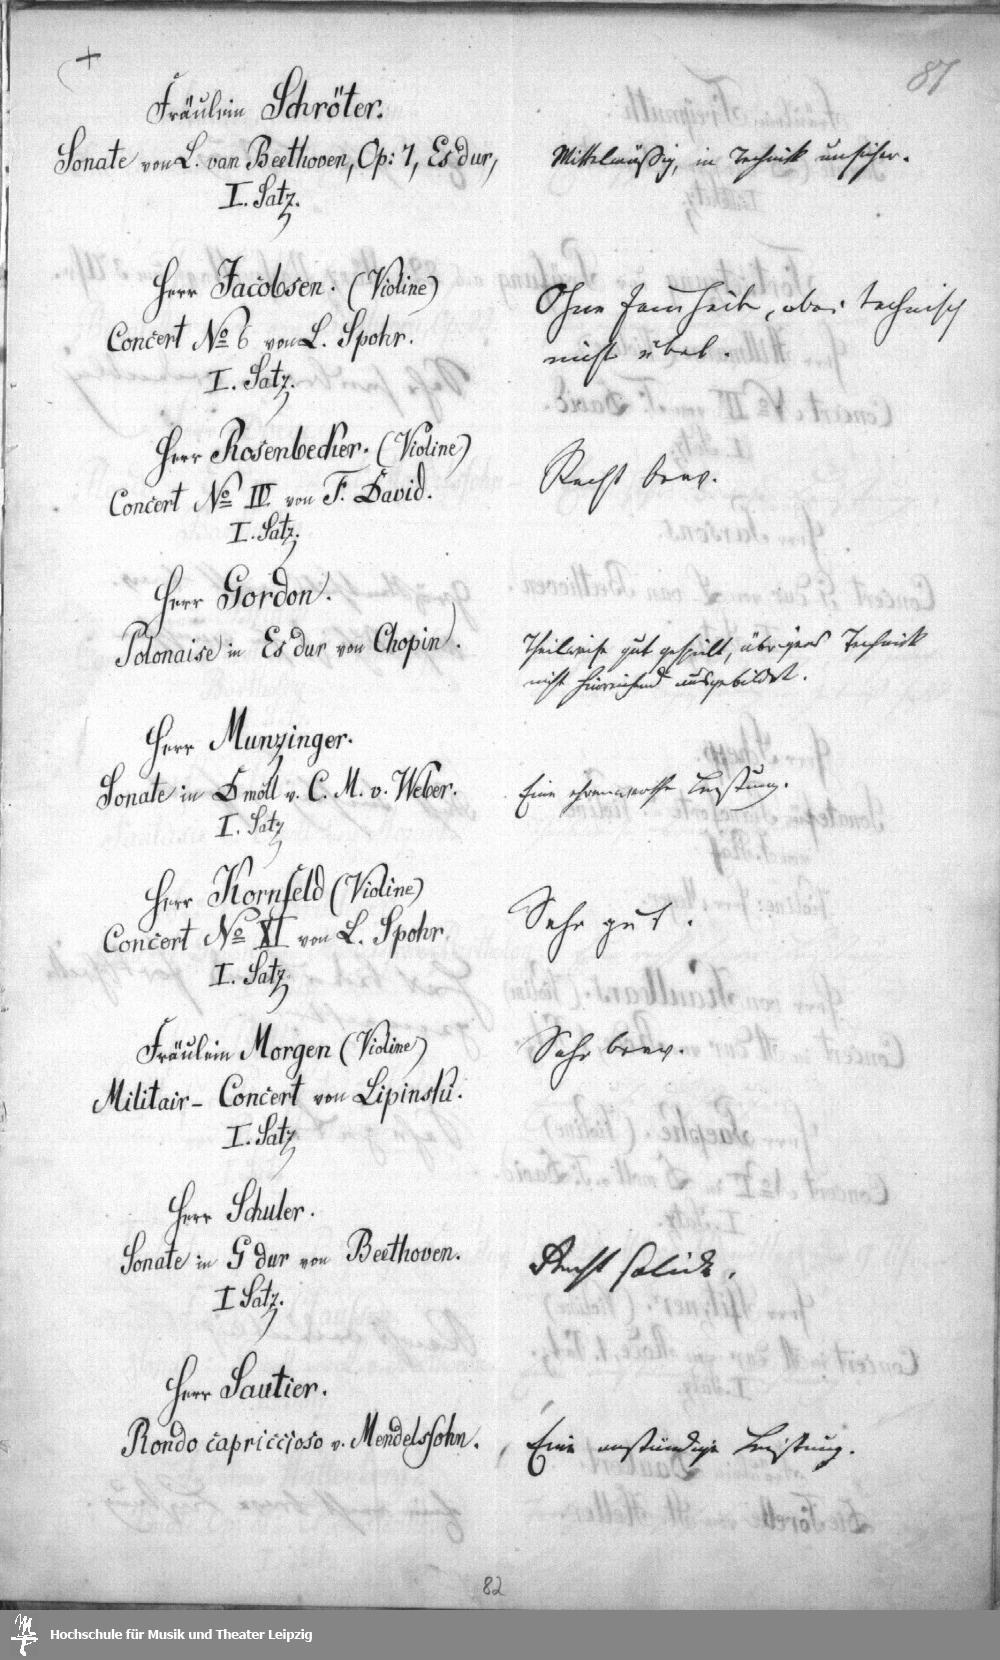 +
87
Fräulein Schröter.
Sonate von L. van Beethoven, Op: 7, Es dur,
I. Satz.
Mittelmäßig, in Technik unsicher.
Herr Jacobsen. (Violine)
Concert No 6 von L. Spohr.
I. Satz.
Ohne Feinheit, aber technisch
nicht übel.
Herr Rosenbecker. (Violine)
Concert No IV. von F. David.
I. Satz.
Recht brav.
Herr Gordon.
Polonaise in Es dur von Chopin.
Theilweise gut gespielt, übrigens Technik
nicht hinreichend ausgebildet.
Herr Munzinger.
Sonate in D moll v. C. M. v. Weber.
I. Satz
Eine ehrenwerthe Leistung.
Herr Kornfeld (Violine)
Concert No XI von L. Spohr.
I. Satz
Sehr gut.
Fräulein Morgen (Violine)
Militair-Concert von Lipinski.
I. Satz
Sehr brav.
Herr Schuler.
Sonate in G dur von Beethoven.
I Satz.
Recht solide.
Herr Sautier.
Rondo capriccioso v. Mendelssohn.
Eine anständige Leistung.
82
Hochschule für Musik und Theater Leipzig